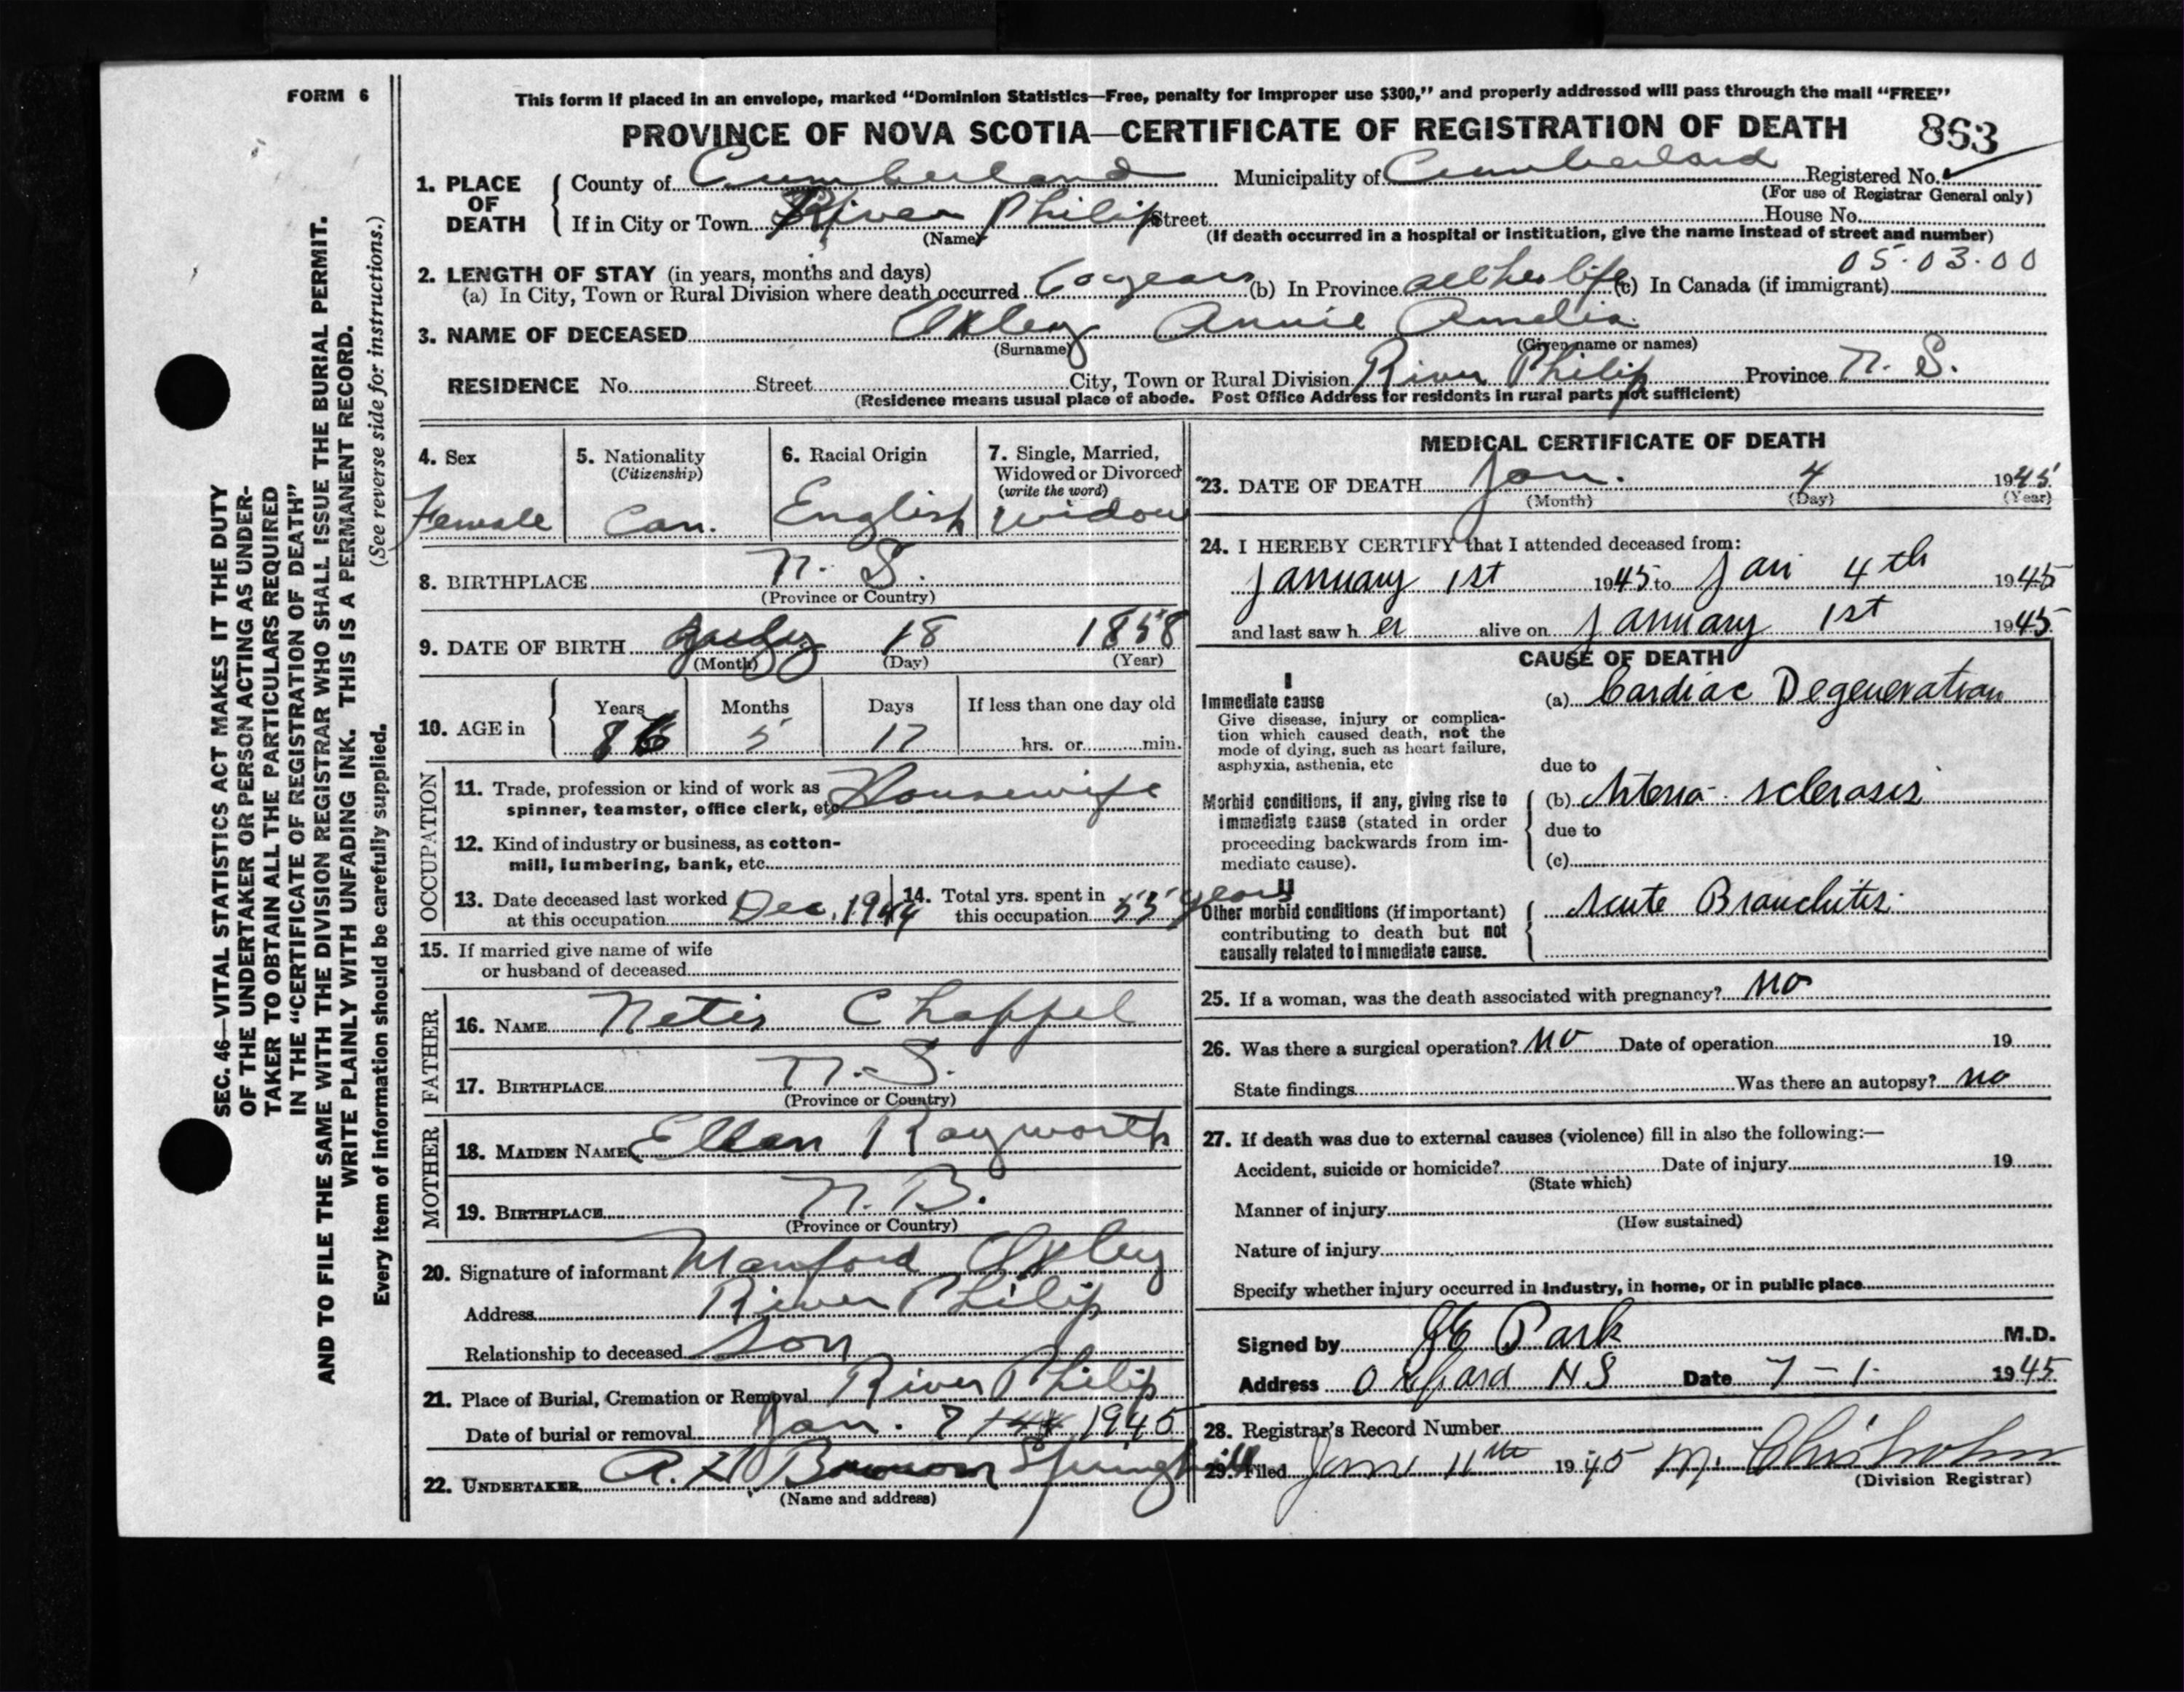 FORM 6
This form if placed in an envelope, marked "Dominion Statistics—Free, penalty for improper use $300," and properly addressed will pass through the mail "FREE"
PROVINCE OF NOVA SCOTIA—CERTIFICATE OF REGISTRATION OF DEATH 863
1. PLACE OF DEATH
County of Cumberland Municipality of Cumberland Registered No.
(For use of Registrar General only)
If in City or Town River Philip Street House No.
(Name) (If death occurred in a hospital or institution, give the name instead of street and number)
05·03·00
2. LENGTH OF STAY (in years, months and days)
(a) In City, Town or Rural Division where death occurred 60 years (b) In Province all her life (c) In Canada (if immigrant)
3. NAME OF DECEASED Oxley Annie Amelia
(Surname) (Given name or names)
RESIDENCE No. Street City, Town or Rural Division River Philip Province N. S.
(Residence means usual place of abode. Post Office Address for residents in rural parts not sufficient)
4. Sex
Female
5. Nationality
(Citizenship)
Can.
6. Racial Origin
English
7. Single, Married,
Widowed or Divorced
(write the word)
Widow
8. BIRTHPLACE N. S.
(Province or Country)
9. DATE OF BIRTH July 18 1858
(Month) (Day) (Year)
10. AGE in
Years Months Days If less than one day old
86 5 17 hrs. or min.
OCCUPATION
11. Trade, profession or kind of work as
spinner, teamster, office clerk, etc. Housewife
12. Kind of industry or business, as cotton-
mill, lumbering, bank, etc.
13. Date deceased last worked
at this occupation Dec. 1944
14. Total yrs. spent in
this occupation 55 years
15. If married give name of wife
or husband of deceased
FATHER
16. NAME Chappel
17. BIRTHPLACE N. S.
(Province or Country)
MOTHER
18. MAIDEN NAME Ellen Rayworth
19. BIRTHPLACE N. B.
(Province or Country)
20. Signature of informant Manford Oxley
Address River Philip
Relationship to deceased Son
21. Place of Burial, Cremation or Removal River Philip
Date of burial or removal Jan. 7 1945
22. UNDERTAKER A. H. Brown Springhill
(Name and address)
MEDICAL CERTIFICATE OF DEATH
23. DATE OF DEATH Jan. 4 1945
(Month) (Day) (Year)
24. I HEREBY CERTIFY that I attended deceased from:
January 1st 1945 to Jan 4th 1945
and last saw her alive on January 1st 1945
CAUSE OF DEATH
I
Immediate cause
Give disease, injury or complica-
tion which caused death, not the
mode of dying, such as heart failure,
asphyxia, asthenia, etc
(a) Cardiac Degeneration
due to
Morbid conditions, if any, giving rise to
immediate cause (stated in order
proceeding backwards from im-
mediate cause).
(b) Arterio-sclerosis
due to
(c)
II
Other morbid conditions (if important)
contributing to death but not
causally related to immediate cause.
Acute Bronchitis
25. If a woman, was the death associated with pregnancy? no
26. Was there a surgical operation? no Date of operation 19
State findings Was there an autopsy? no
27. If death was due to external causes (violence) fill in also the following:—
Accident, suicide or homicide? Date of injury 19
(State which)
Manner of injury
(How sustained)
Nature of injury
Specify whether injury occurred in industry, in home, or in public place
Signed by Park M.D.
Address Oxford NS Date 7-1- 1945
28. Registrar's Record Number
29. Filed Jan 11th 1945 M. Chisholm
(Division Registrar)
SEC. 46—VITAL STATISTICS ACT MAKES IT THE DUTY
OF THE UNDERTAKER OR PERSON ACTING AS UNDER-
TAKER TO OBTAIN ALL THE PARTICULARS REQUIRED
IN THE "CERTIFICATE OF REGISTRATION OF DEATH"
AND TO FILE THE SAME WITH THE DIVISION REGISTRAR WHO SHALL ISSUE THE BURIAL PERMIT.
WRITE PLAINLY WITH UNFADING INK. THIS IS A PERMANENT RECORD.
Every item of information should be carefully supplied. (See reverse side for instructions.)